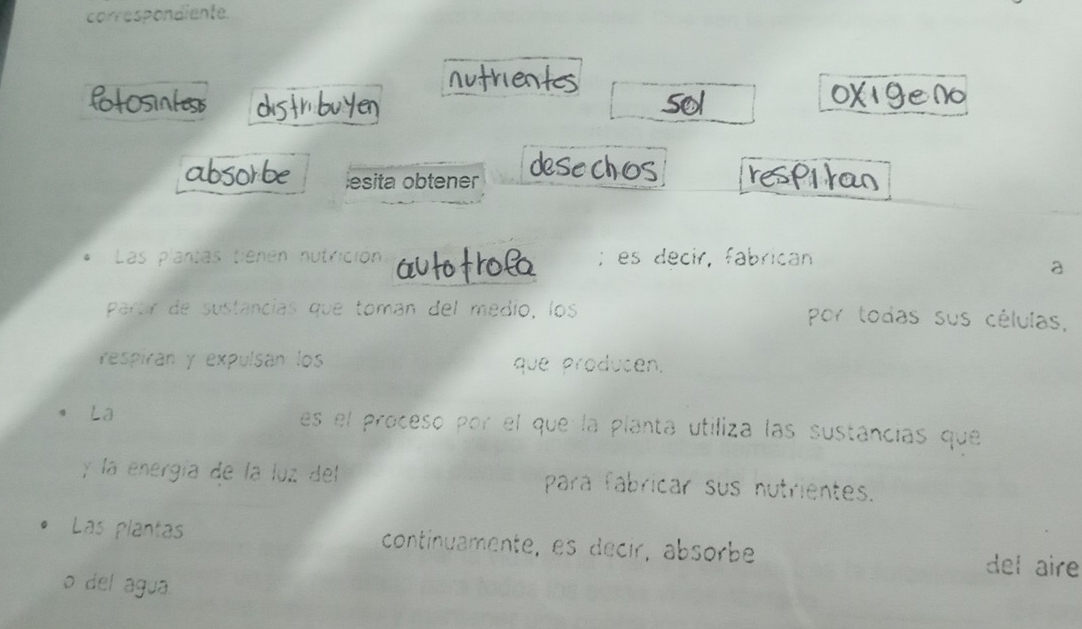 correspondiente.
fotosíntesis distribuyen nutrientes sol oxigeno
absorbe esita obtener desechos respiran
• Las plantas tienen nutrición autotrofa ; es decir, fabrican a
partir de sustancias que toman del medio, los por todas sus células,
respiran y expulsan los que producen.
• La es el proceso por el que la planta utiliza las sustancias que
y la energía de la luz del para fabricar sus nutrientes.
• Las plantas continuamente, es decir, absorbe del aire
o del agua